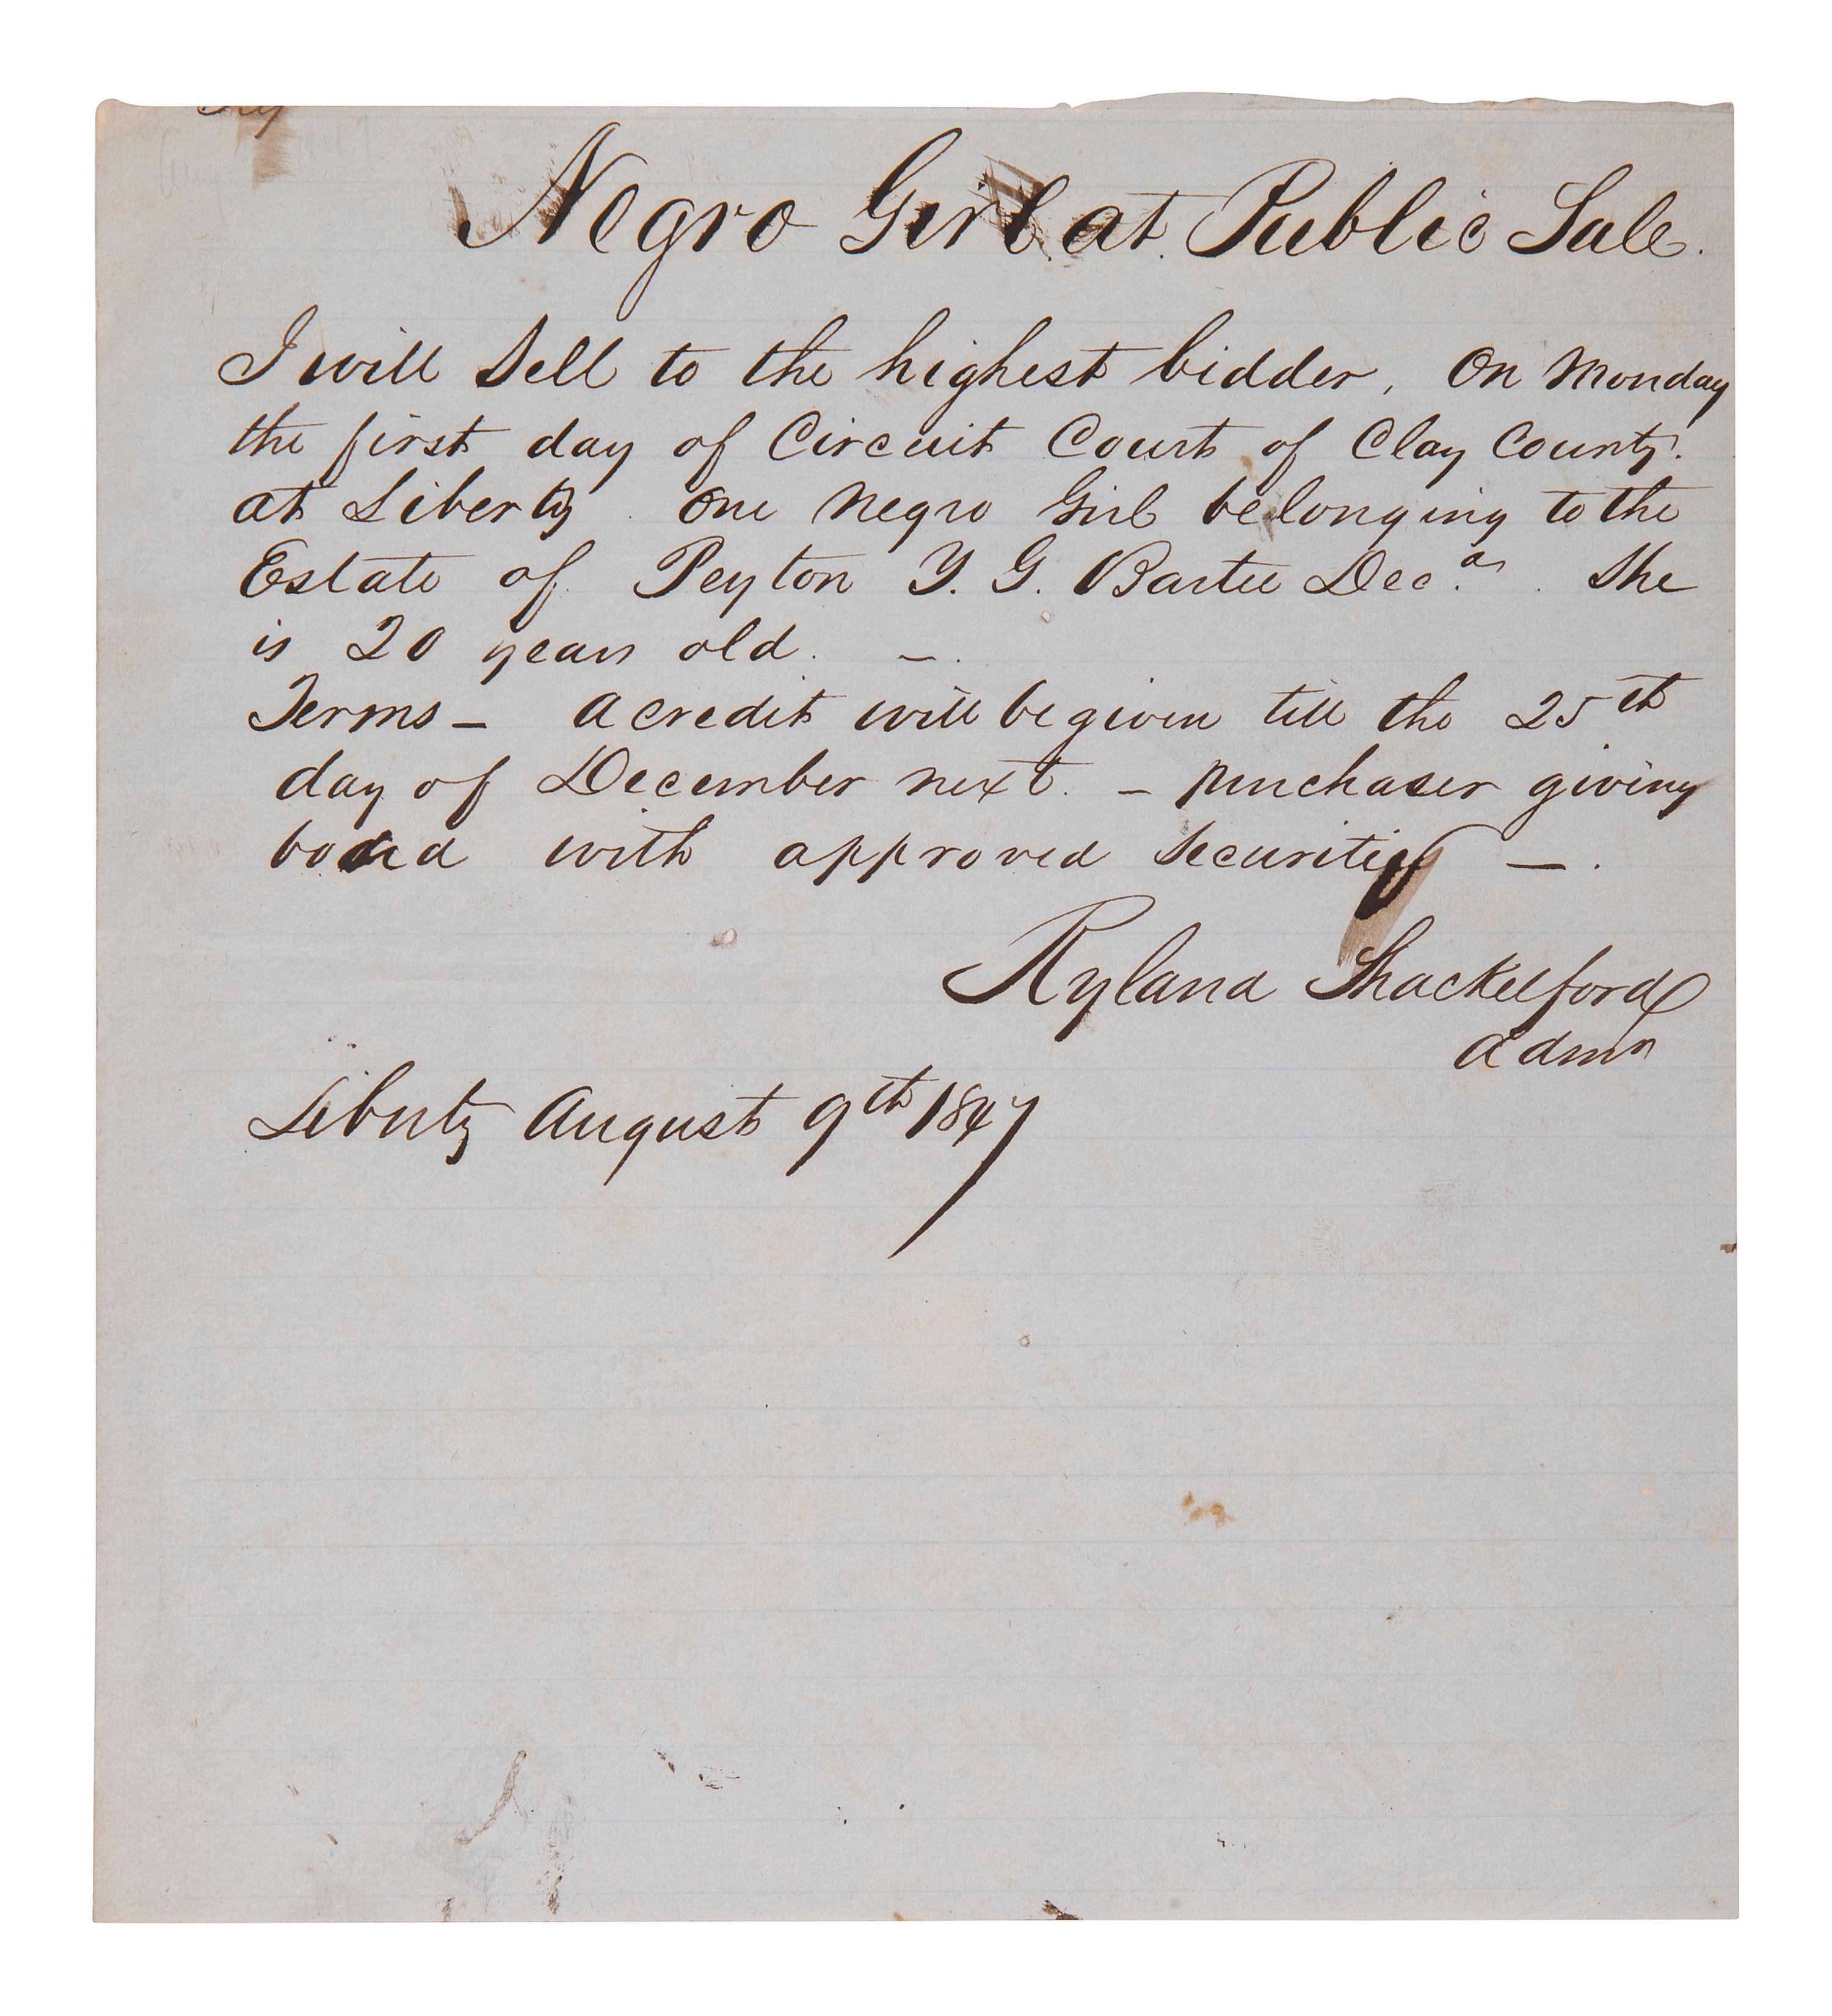 Negro Girl at Public Sale.
I will Sell to the highest bidder, On Monday
the first day of Circuit Court of Clay County.
at Liberty One Negro Girl belonging to the
Estate of Peyton Y. G. Bartee Decd. She
is 20 years old. —
Terms — A credit will be given till the 25th
day of December next. — purchaser giving
bond with approved Securities — .
Ryland Shackelford
Admr
Liberty August 9th 1847